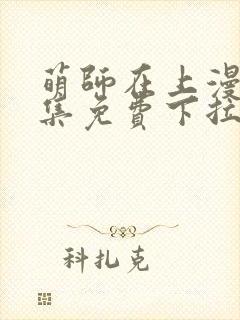 萌师在上漫
集免费下拉
科扎克